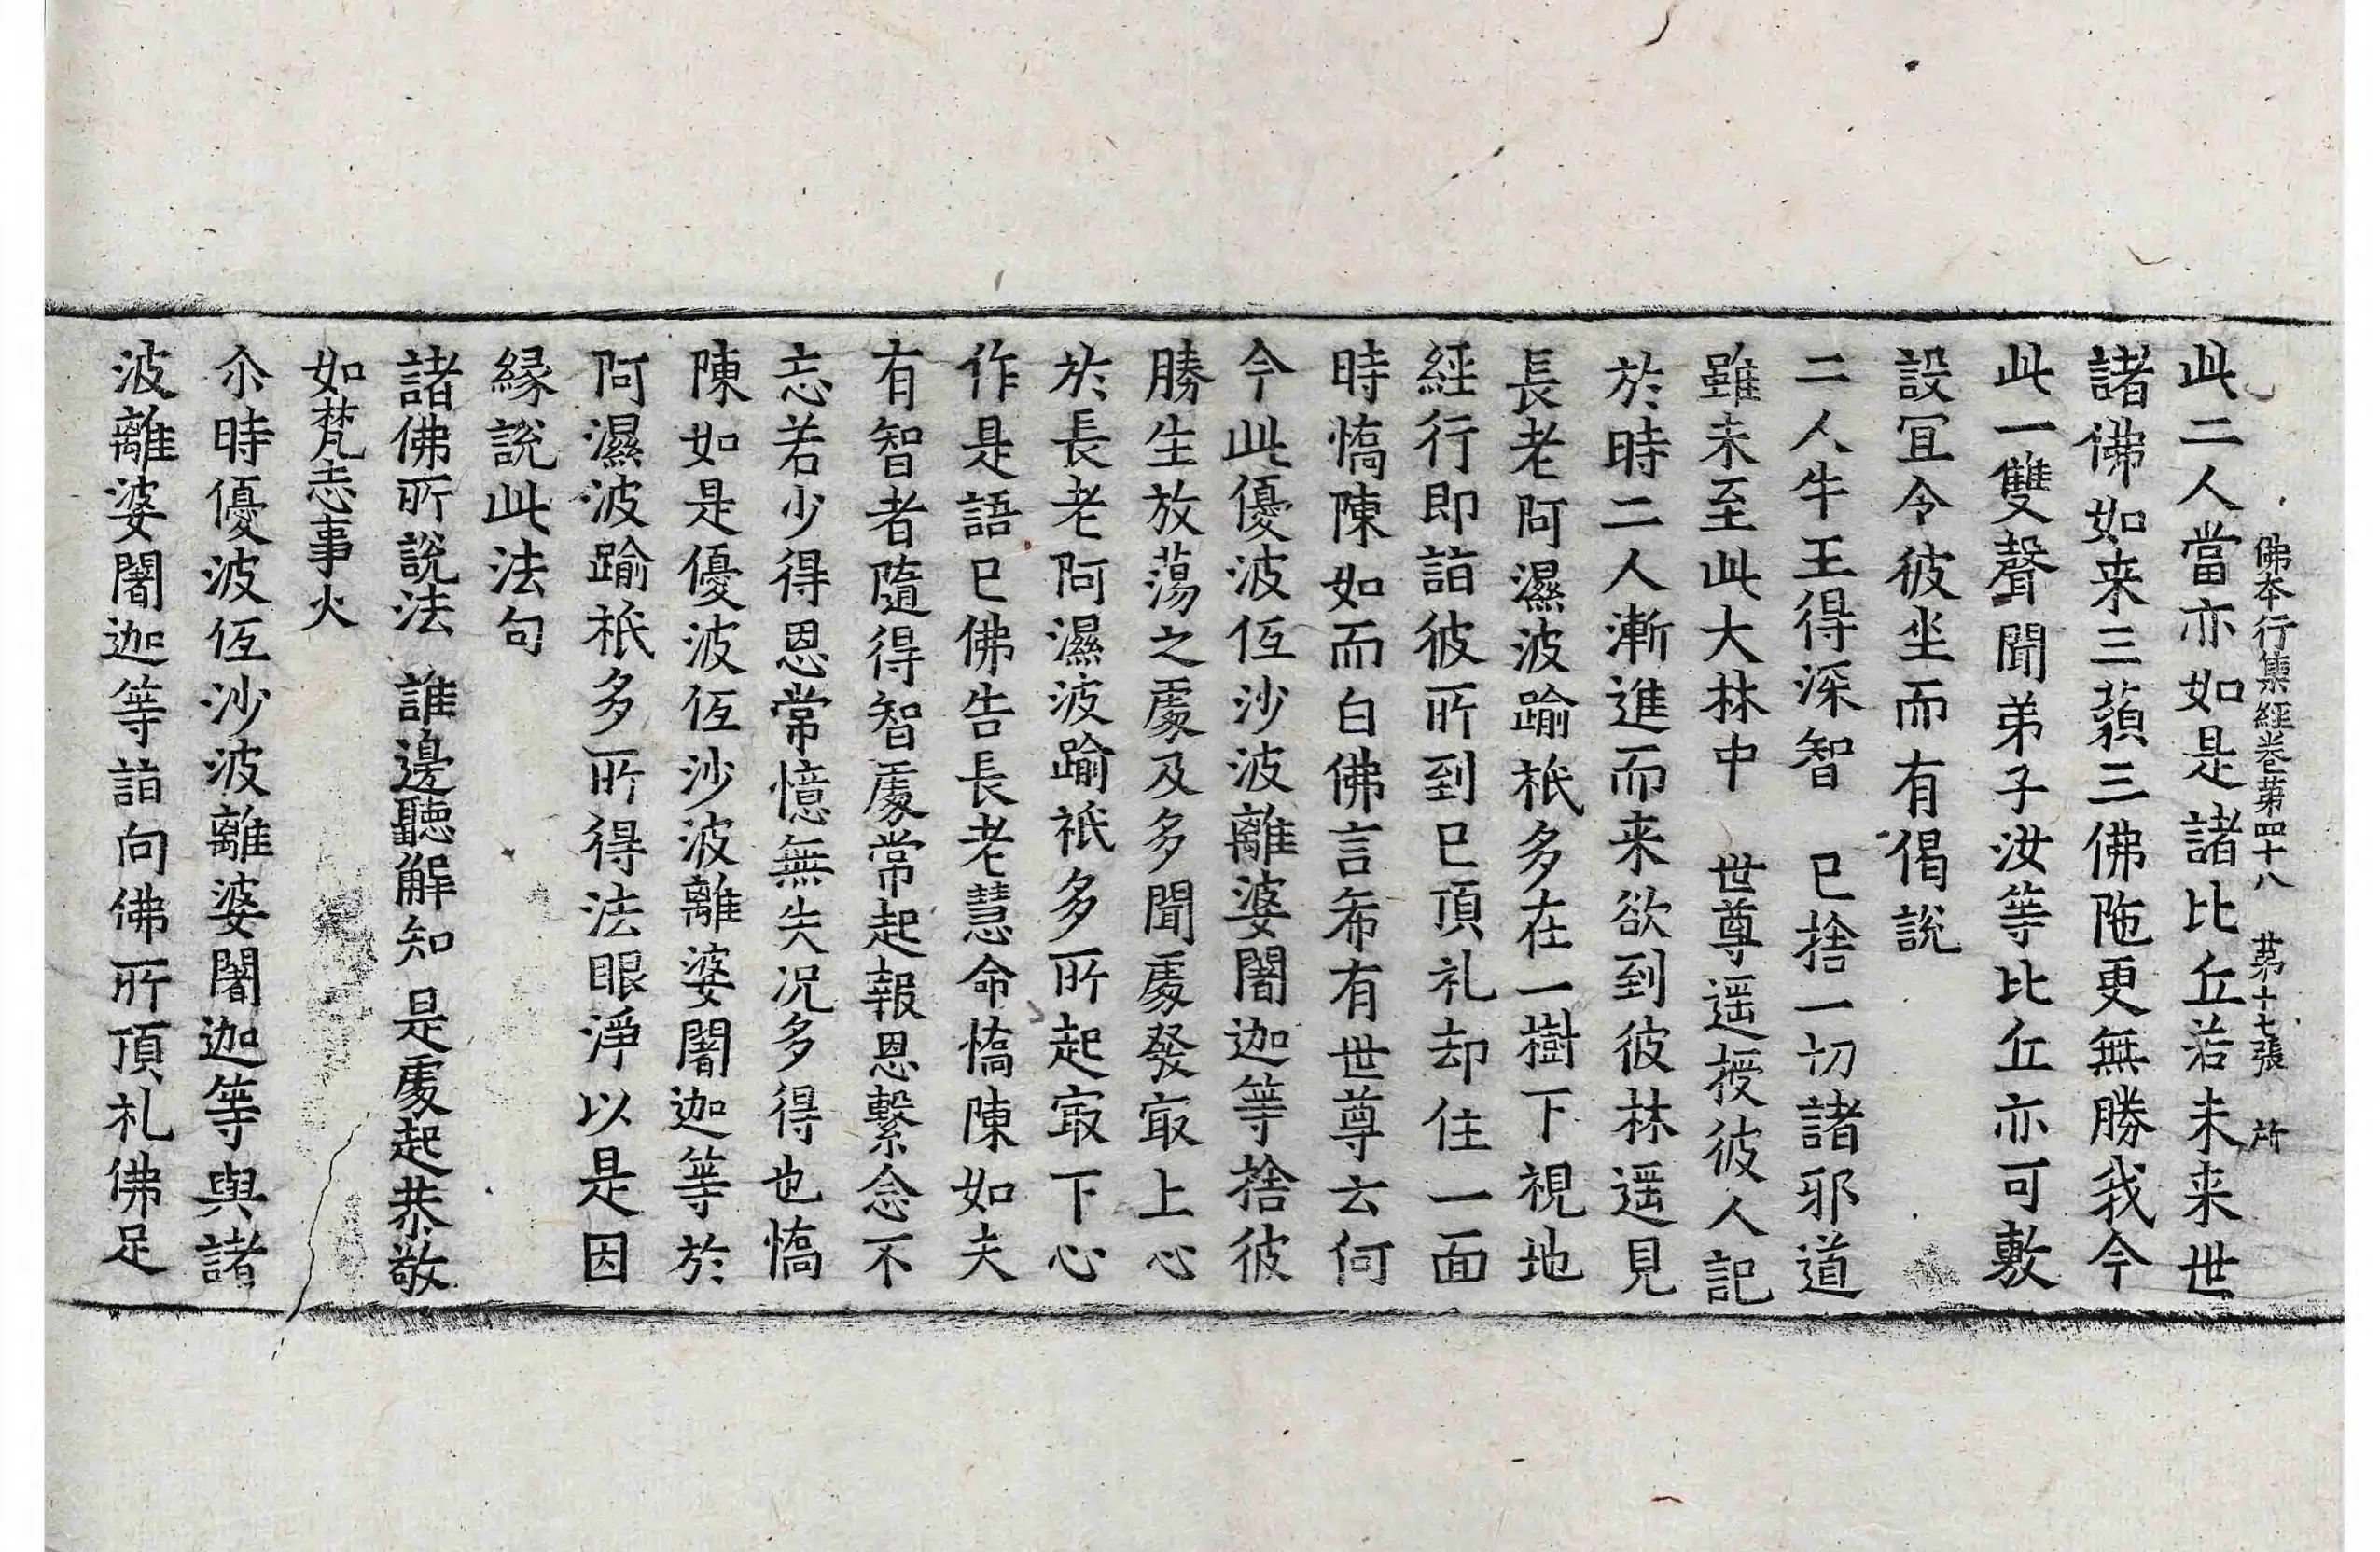 佛本行集經卷第四十八　第十七張　所
此二人當亦如是諸比丘若未来世
諸佛如来三藐三佛陁更無勝我今
此一雙聲聞弟子汝等比丘亦可敷
設冝令彼坐而有偈說
二人牛王得深智　已捨一切諸邪道
雖未至此大林中　世尊遥授彼人記
於時二人漸進而来欲到彼林遥見
長老阿濕波踰祇多在一樹下視地
經行即詣彼所到已頂礼却住一面
時憍陳如而白佛言希有世尊云何
今此優波低沙波離婆闍迦等捨彼
勝生放蕩之處及多聞處發㝡上心
於長老阿濕波踰祇多所起㝡下心
作是語已佛告長老慧命憍陳如夫
有智者隨得智處常起報恩繫念不
忘若少得恩常憶無失况多得也憍
陳如是優波低沙波離婆闍迦等於
阿濕波踰祇多所得法眼淨以是因
緣說此法句
諸佛所說法　誰邊聽解知　是處起恭敬
如梵志事火
尒時優波低沙波離婆闍迦等與諸
波離婆闍迦等詣向佛所頂礼佛足